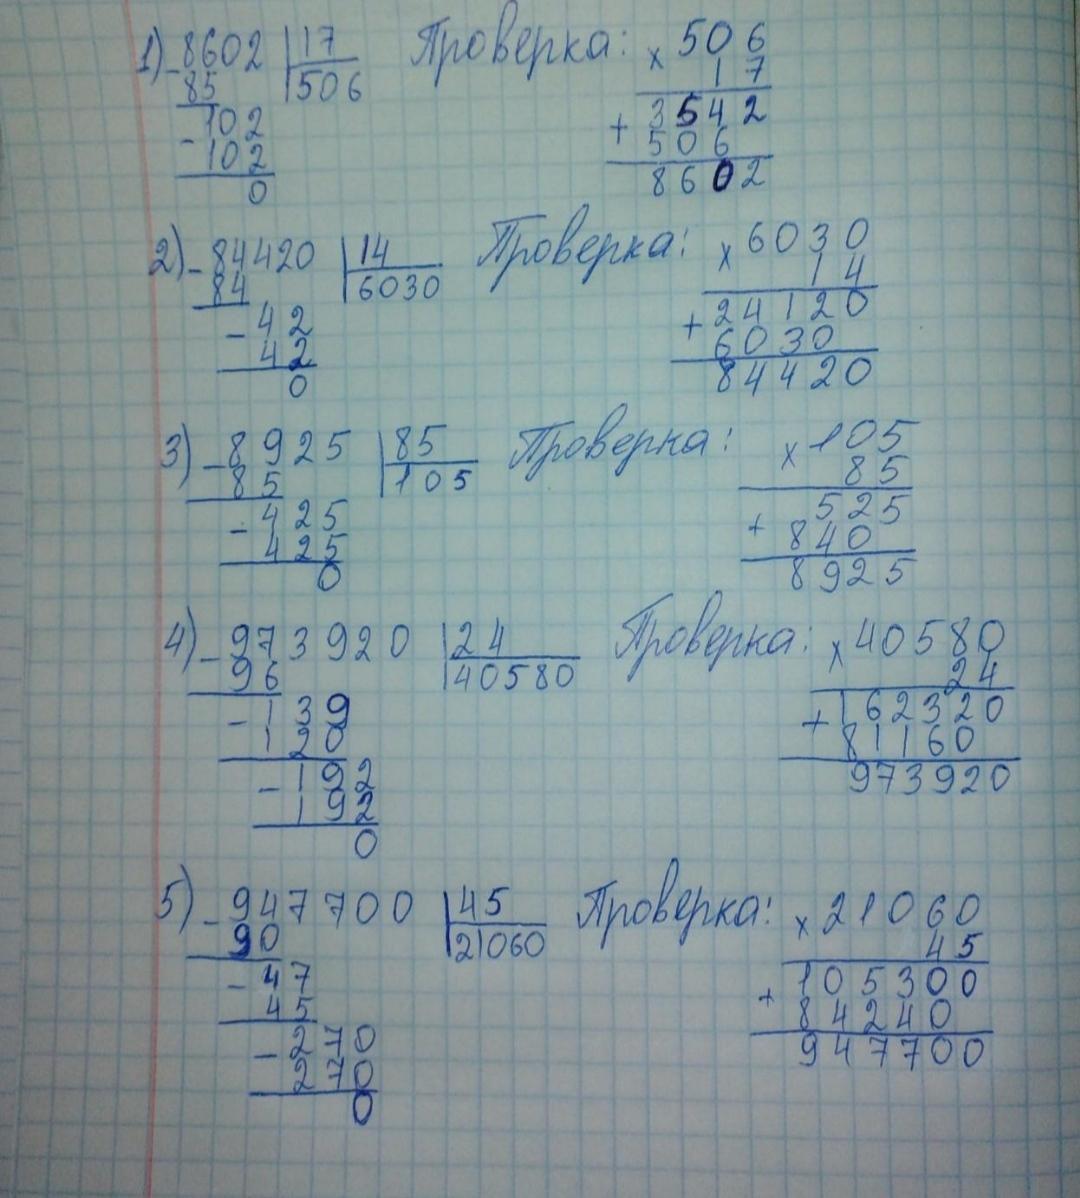 1) -8602 |17 Проверка: x 506
85 |506 17
-102 + 3542
102 506
0 8602
2) -84420 |14 Проверка: x 6030
84 |6030 14
-42 + 24120
42 6030
0 84420
3) -8925 |85 Проверка: x 105
85 |105 85
-425 + 525
425 840
0 8925
4) -973920 |24 Проверка: x 40580
96 |40580 24
-139 + 162320
120 81160
-192 973920
192
0
5) -947700 |45 Проверка: x 21060
90 |21060 45
-47 + 105300
45 84240
-270 947700
270
0